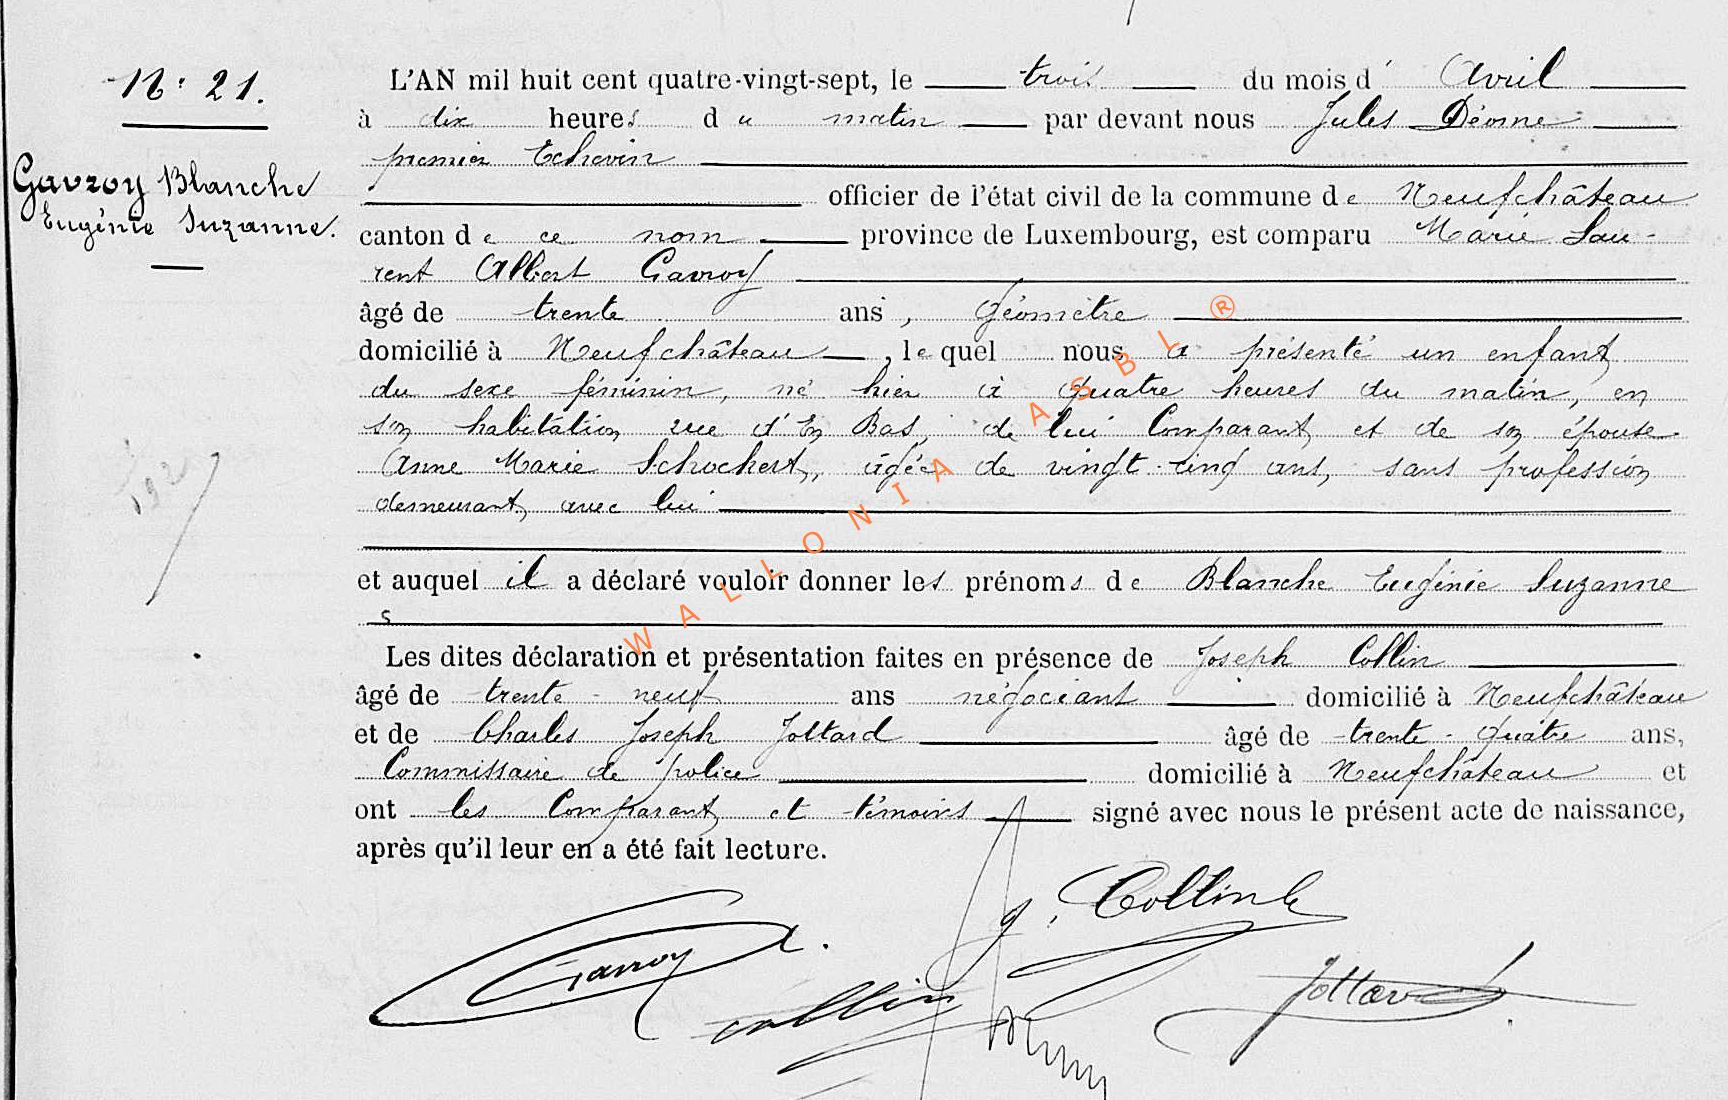 N: 21.
Gavroy Blanche
Eugénie Suzanne.
L'AN mil huit cent quatre-vingt-sept, le trois du mois d' Avril
à dix heures du matin par devant nous Jules
premier Echevin
officier de l'état civil de la commune de Neufchâteau
canton de ce nom province de Luxembourg, est comparu Marie Lau-
rent Albert Gavroy
âgé de trente ans, Géomètre
domicilié à Neufchâteau, lequel nous a présenté un enfant
du sexe féminin, né hier à quatre heures du matin, en
son habitation rue d'En Bas, de lui Comparant et de son épouse
Anne Marie Schockert, âgée de vingt-cinq ans, sans profession
demeurant avec lui
et auquel il a déclaré vouloir donner les prénoms de Blanche Eugénie Suzanne
s
Les dites déclaration et présentation faites en présence de Joseph Collin
âgé de trente-neuf ans négociant domicilié à Neufchâteau
et de Charles Joseph Jottard âgé de trente-quatre ans,
Commissaire de police domicilié à Neufchâteau et
ont les Comparant et témoins signé avec nous le présent acte de naissance,
après qu'il leur en a été fait lecture.
J. Collin
Gavroy
Collin
Jottard
WALLONIA ASBL ®